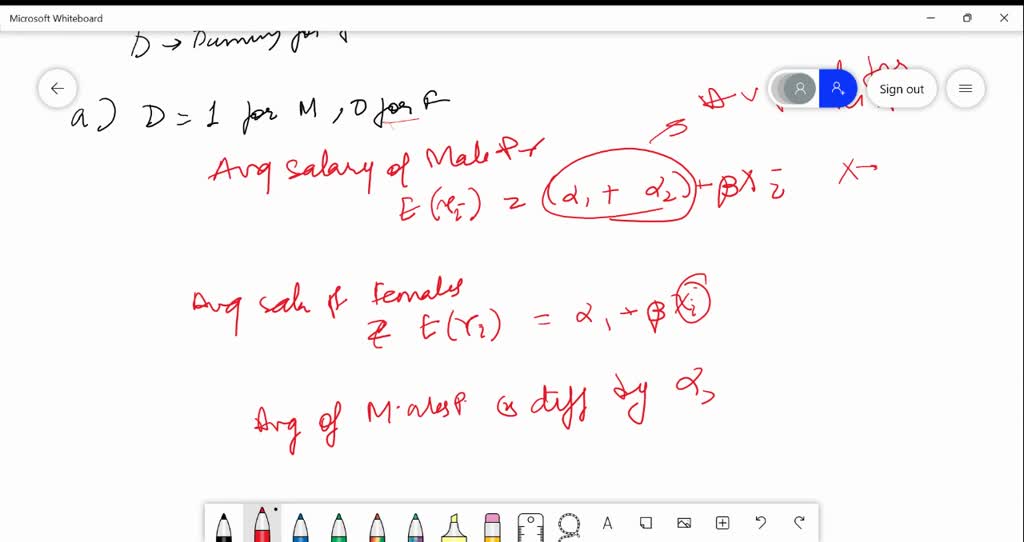 Microsoft Whiteboard
D → Dummy for
Sign out
a) D = 1 for M, 0 for F
Avg salary of Male Pr
E(Yi) = (α1 + α2) + βXi
X →
Avg sala of Females
E(Yi) = α1 + βXi
Avg of Males P. is diff by α2
A